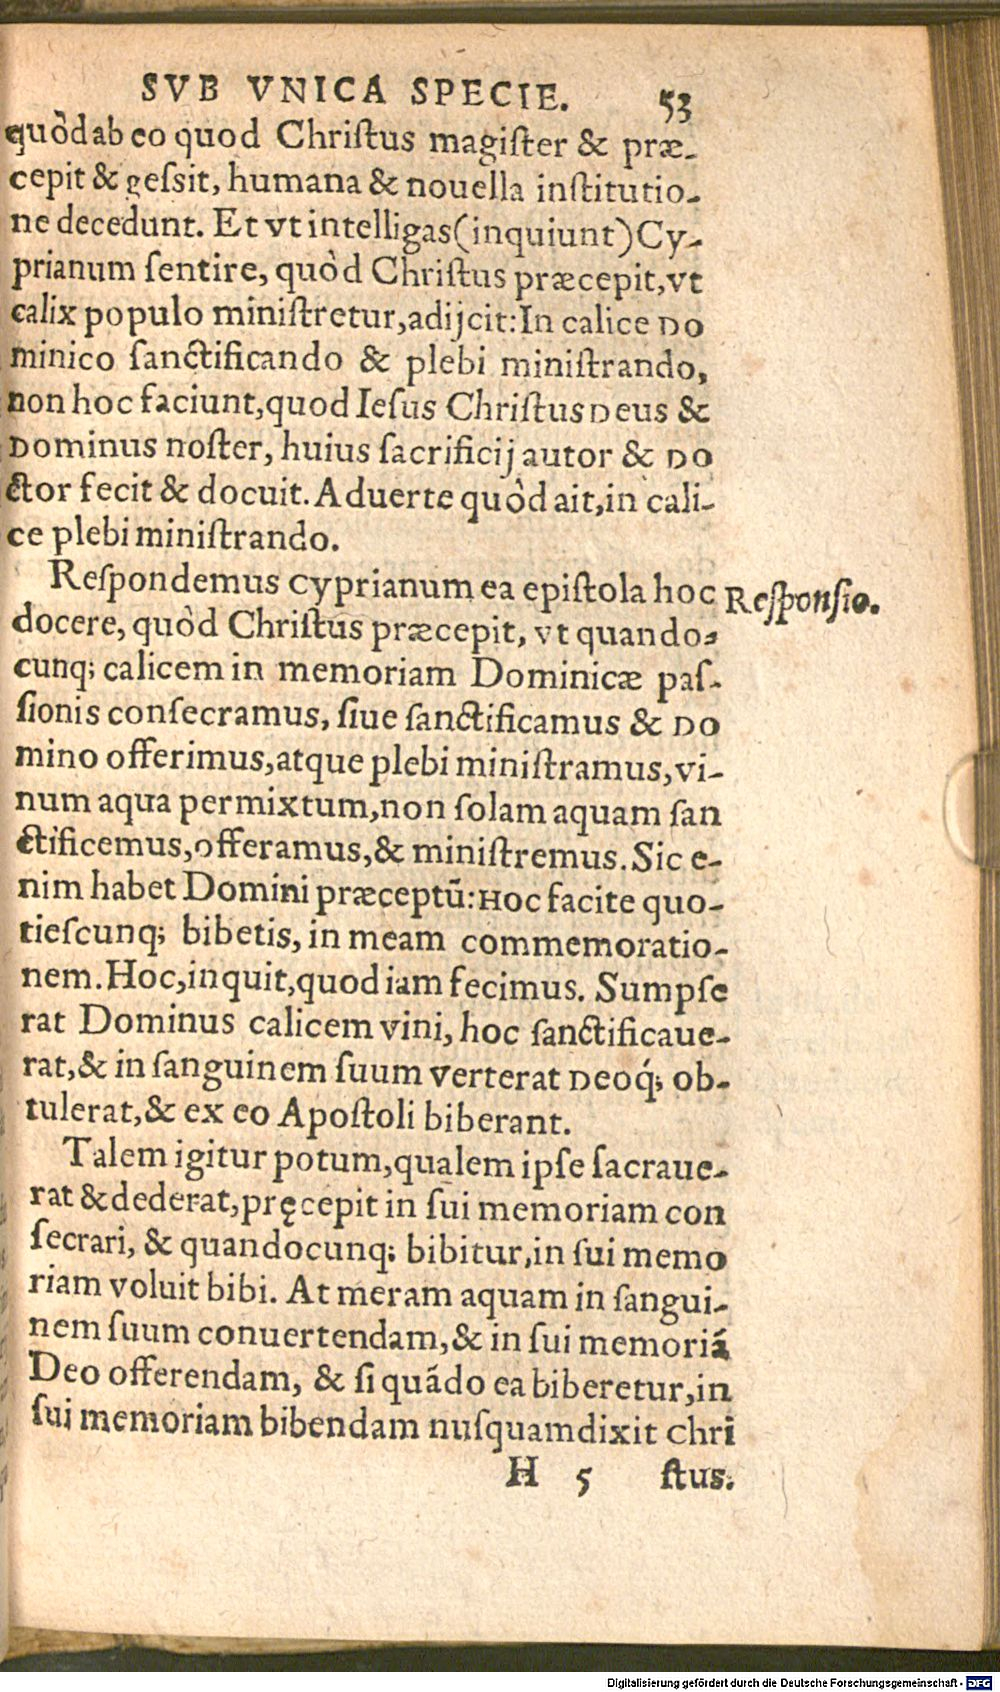 SVB VNICA SPECIE. 53
quòd ab eo quod Christus magister & præ-
cepit & gessit, humana & nouella institutio-
ne decedunt. Et vt intelligas (inquiunt) Cy-
prianum sentire, quòd Christus præcepit, vt
calix populo ministretur, adijcit: In calice DO
minico sanctificando & plebi ministrando,
non hoc faciunt, quod Iesus Christus DEUS &
DOminus noster, huius sacrificij autor & DO
ctor fecit & docuit. Aduerte quòd ait, in cali-
ce plebi ministrando.
Respondemus Cyprianum ea epistola hoc
Responsio.
docere, quòd Christus præcepit, vt quando-
cunq; calicem in memoriam Dominicæ pas-
sionis consecramus, siue sanctificamus & DO
mino offerimus, atque plebi ministramus, vi-
num aqua permixtum, non solam aquam san
ctificemus, offeramus, & ministremus. Sic e-
nim habet Domini præceptū: Hoc facite quo-
tiescunq; bibetis, in meam commemoratio-
nem. Hoc, inquit, quod iam fecimus. Sumpse
rat Dominus calicem vini, hoc sanctificaue-
rat, & in sanguinem suum verterat Deoq́; ob-
tulerat, & ex eo Apostoli biberant.
Talem igitur potum, qualem ipse sacraue-
rat & dederat, pręcepit in sui memoriam con
secrari, & quandocunq; bibitur, in sui memo
riam voluit bibi. At meram aquam in sangui-
nem suum conuertendam, & in sui memoriā
Deo offerendam, & si quādo ea biberetur, in
sui memoriam bibendam nusquam dixit Chri
H 5 stus.
Digitalisierung gefördert durch die Deutsche Forschungsgemeinschaft - DFG